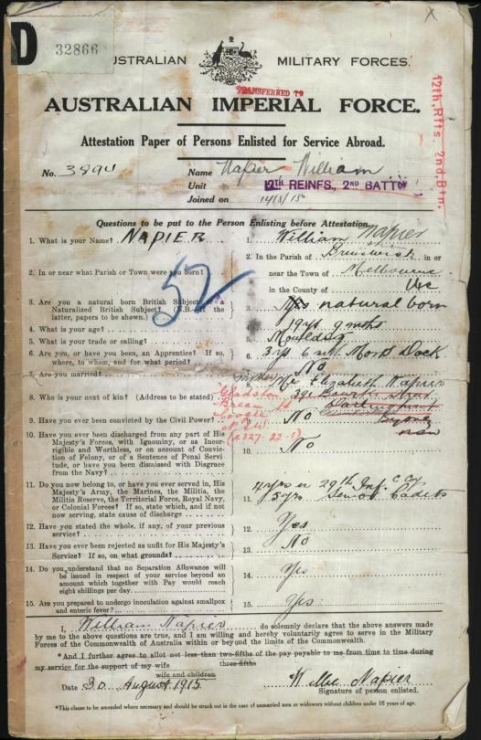 D
32866
AUSTRALIAN MILITARY FORCES.
TRANSFERRED TO
AUSTRALIAN IMPERIAL FORCE.
12th. Rfts. 2nd. Btn.
Attestation Paper of Persons Enlisted for Service Abroad.
No. Name Napier William
Unit 12TH REINFS, 2ND BATTN
Joined on
Questions to be put to the Person Enlisting before Attestation.
1. What is your Name? NAPIER 1. William Napier
2. In or near what Parish or Town were you born? 2. In the Parish of Brunswick in or
near the Town of Melbourne
in the County of Vic
52
3. Are you a natural born British Subject or a
Naturalized British Subject? (N.B.—If the
latter, papers to be shown.) 3. natural born
4. What is your age? 4. 19 yrs 9 mths
5. What is your trade or calling? 5. Moulding
6. Are you, or have you been, an Apprentice? If so,
where, to whom, and for what period? 6. 3 yrs 6 mth Morts Dock
7. Are you married? 7. No
8. Who is your next of kin? (Address to be stated) 8. Mother Elizabeth Napier
Sydney
NSW
9. Have you ever been convicted by the Civil Power? 9. No
10. Have you ever been discharged from any part of His
Majesty's Forces, with Ignominy, or as Incor-
rigible and Worthless, or on account of Convict-
ion of Felony, or of a Sentence of Penal Servi-
tude, or have you been dismissed with Disgrace
from the Navy? 10. No
11. Do you now belong to, or have you ever served, in His
Majesty's Army, the Marines, the Militia, the
Militia Reserve, the Territorial Force, Royal Navy,
or Colonial Forces? If so, state which, and if not
now serving, state cause of discharge 11. 29th Inf.
3 yrs. Senior Cadets
12. Have you stated the whole, if any, of your previous
service? 12. Yes
13. Have you ever been rejected as unfit for His Majesty's
Service? If so, on what grounds? 13. No
14. Do you understand that no Separation Allowance will
be issued in respect of your service beyond an
amount which together with Pay would reach
eight shillings per day. 14. Yes
15. Are you prepared to undergo inoculation against smallpox
and enteric fever? 15. Yes
I, William Napier do solemnly declare that the above answers made
by me to the above questions are true, and I am willing and hereby voluntarily agree to serve in the Military
Forces of the Commonwealth of Australia within or beyond the limits of the Commonwealth.
*And I further agree to allot not less than two-fifths of the pay payable to me from time to time during
three-fifths
my service for the support of my wife
wife and children
Date 30 August 1915. Willie Napier
Signature of person enlisted.
*This clause to be amended where necessary and should be struck out in the case of unmarried men or widowers without children under 18 years of age.